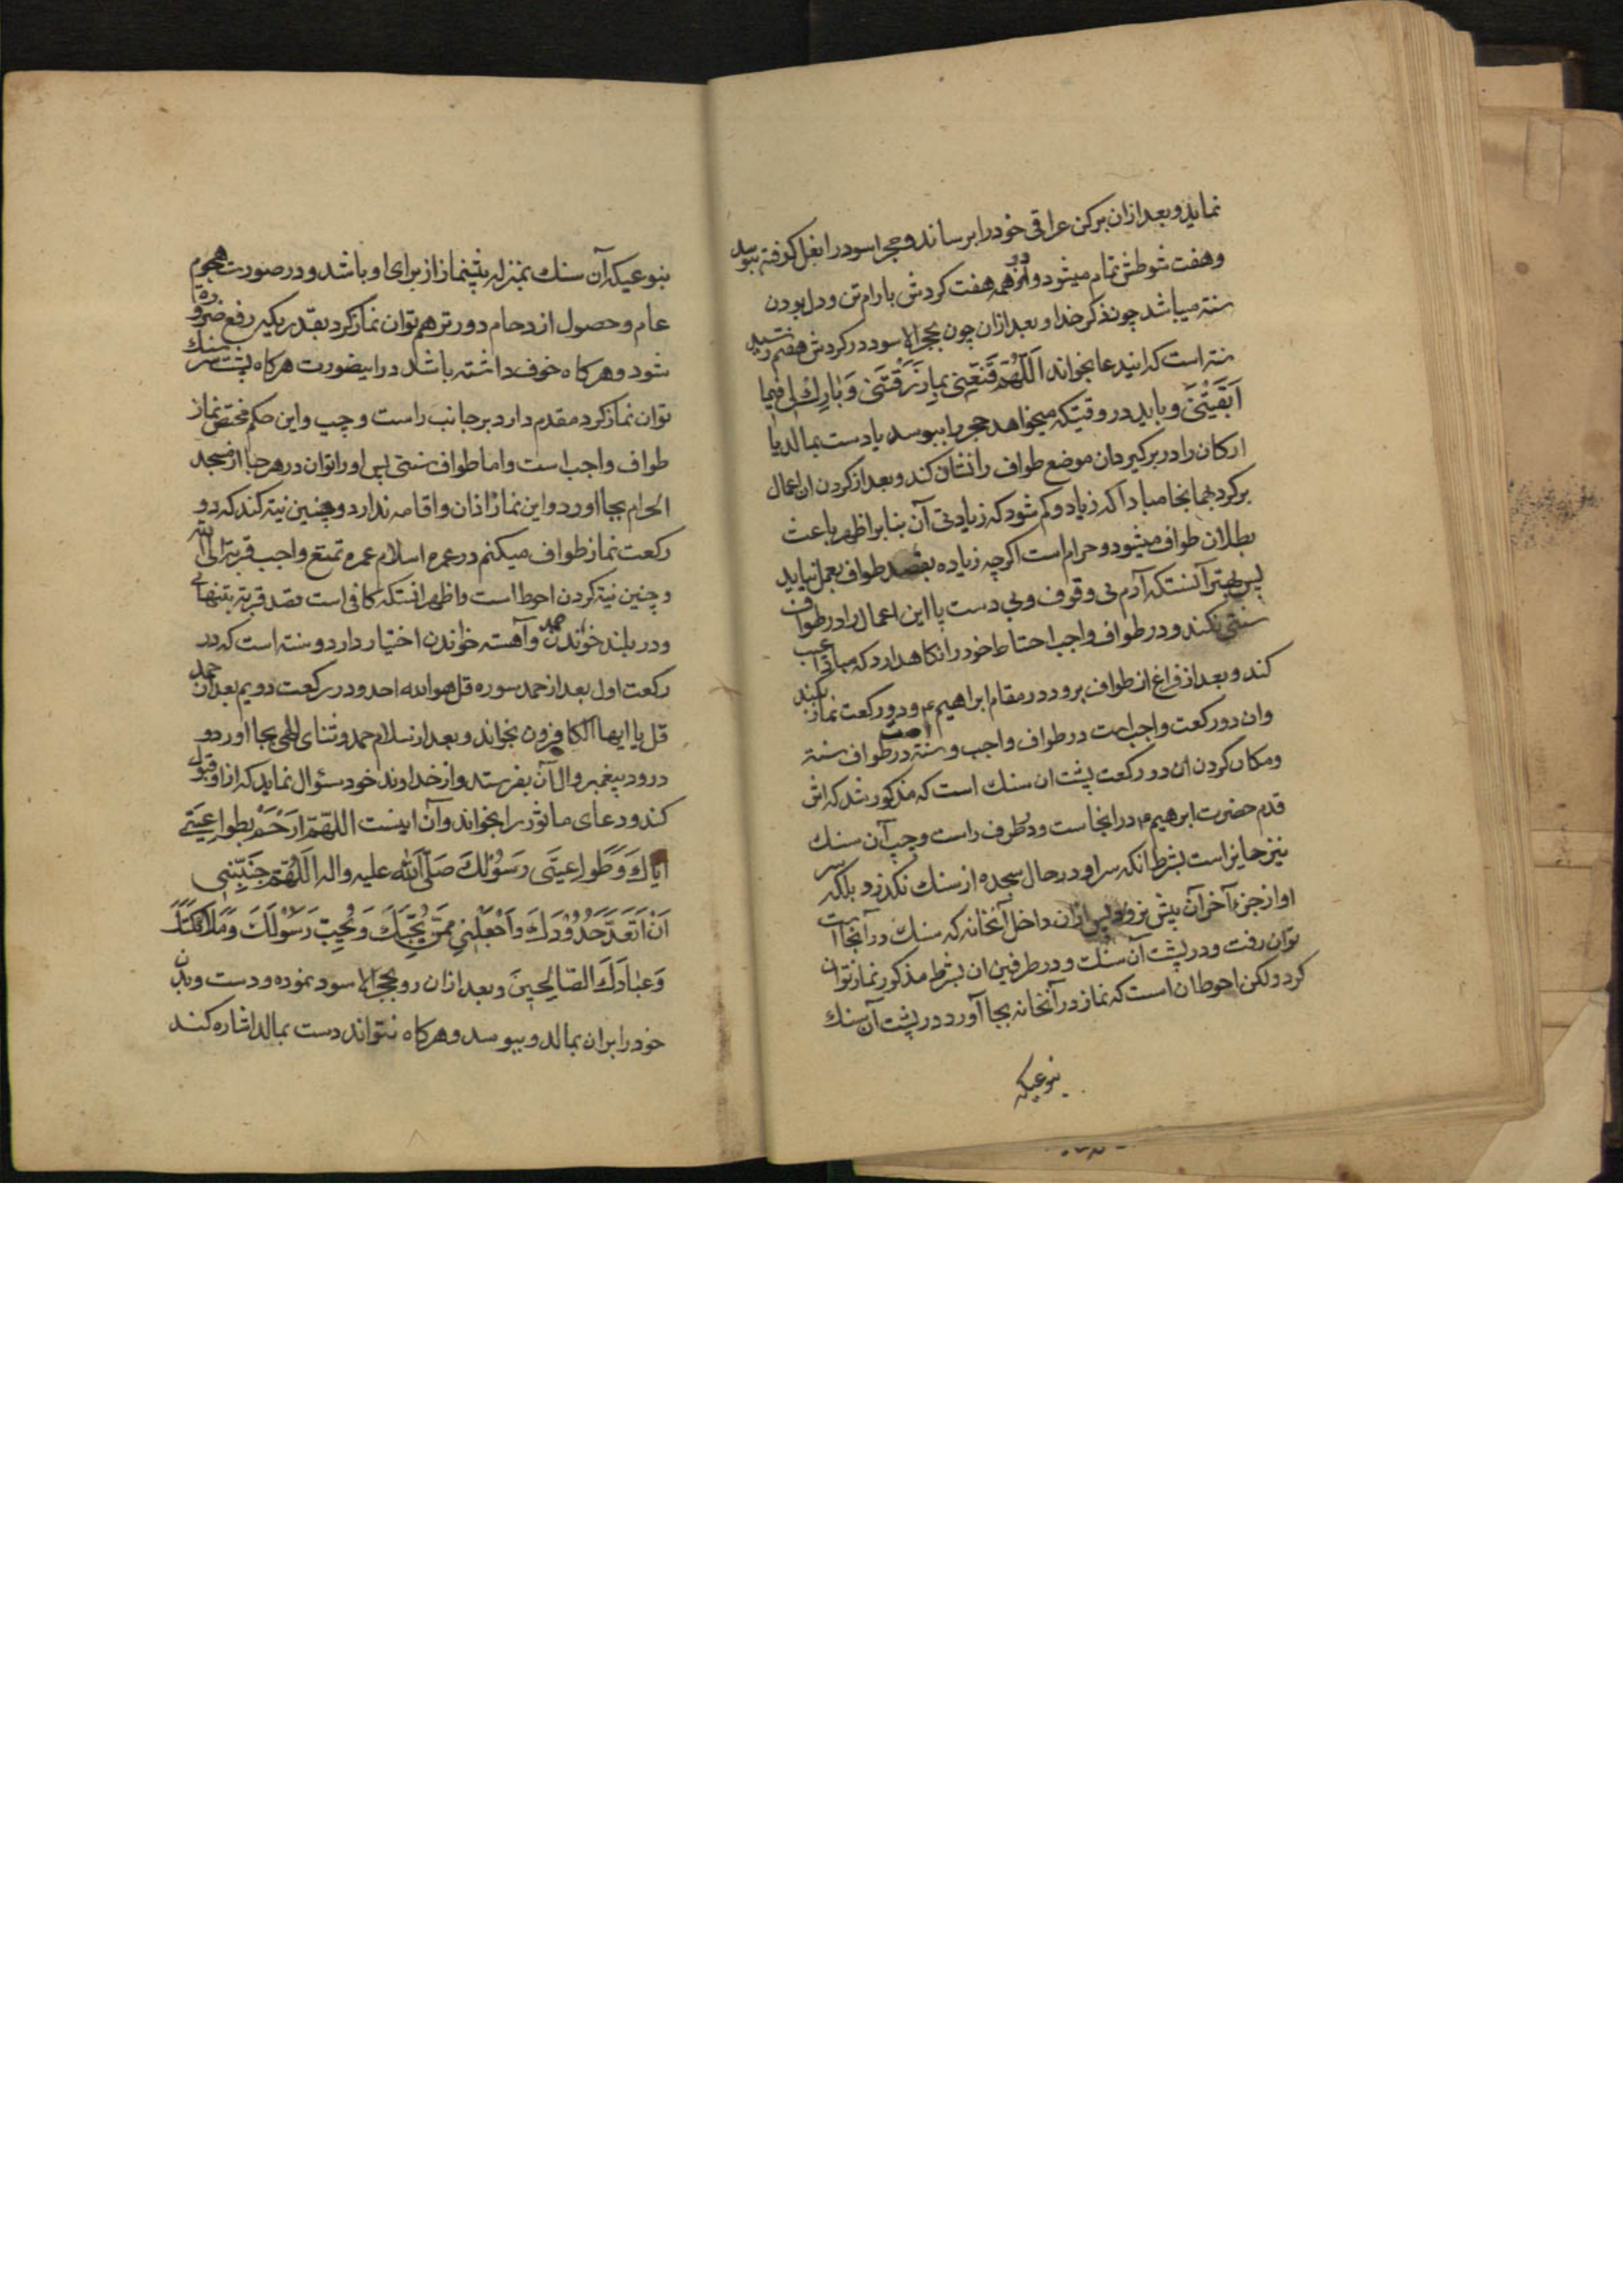 نماید و بعد ازان برکن عراقی خود را برساند و حجر اسود را بغل کرفته ببوسد
و هفت شوطش تمام میشود و در همه هفت کردش بارام تن و دل بودن
سنة میباشد چون ذکر خدا و بعد ازان چون بحجر الاسود در کردش هفتم رسید
سنة است که ایندعا بخواند اَللّهُمَّ قَنِّعْنِی بِمٰا رَزَقْتَنی وَبٰارِك لی فیما
اٰتَیْتَنی و باید در وقتیکه میخواهد حجر را ببوسد یا دست بمالد یا
ارکان را در بر کیرد ان موضع طواف را نشان کند و بعد از کردن ان اعمال
برکردد بهمانجا مبادا که زیاد و کم شود که زیادتی آن بنا بر اظهر باعث
بطلان طواف میشود و حرام است اکر چه زیاده بقصد طواف بعمل نیاید
پس بهتر آنستکه آدم بی وقوف و بی دست پا این اعمال را در طواف
سنتی نکند و در طواف واجب احتیاط خود را نکاهدارد که مباد عیب
کند و بعد از فراغ از طواف برود در مقام ابراهیم ع و دو رکعت نماز بکند
و ان دو رکعت واجب است در طواف واجب و سنة در طواف سنة
و مکان کردن ان دو رکعت پشت ان سنك است که مذکور شد که اثر
قدم حضرت ابرهیم ع در انجاست و در طرف راست و چپ آن سنك
نیز جایز است بشرط انکه سر او در حال سجده از سنك نکذرد بلکه سر
او از جزء آخر آن پیش نرود پس ازان داخل آنخانه که سنك در آنجا است
توان رفت و در پشت آن سنك و در طرفین ان بشرط مذکور نماز توان
کرد ولکن احوط ان است که نماز در آنخانه بجا آورد در پشت آن سنك
بنوعیکه
بنوعیکه آن سنك بمنزله پیشنماز از برای او باشد و در صورت هجوم
عام و حصول ازدحام دورتر هم توان نماز کرد بقدریکه رفع ضرورة
شود و هرکاه خوف داشته باشد در اینصورت هرکاه پشت سر سنك
توان نماز کرد مقدم دارد بر جانب راست و چپ و این حکم مختص نماز
طواف واجب است و اما طواف سنتی پس او را توان در هر جا از مسجد
الحرام بجا اورد و این نماز اذان و اقامه ندارد و چنین نیة کند که دو
رکعت نماز طواف میکنم در عمره اسلام عمره تمتع واجب قربة الی الله
و چنین نیة کردن احوط است و اظهر انستکه کافی است قصد قربة بتنهائی
و در بلند خواندن حمد و آهسته خواندن اختیار دارد و سنة است که در
رکعت اول بعد از حمد سوره قل هو الله احد و در رکعت دویم بعد از حمد
قل یا ایها الکافرون بخواند و بعد از سلام حمد و ثنای الهی بجا اورد و
درود بپیغمبر و ال آن بفرستد و از خداوند خود سؤال نماید که از او قبول
کند و دعای ماثور را بخواند و آن اینست اللهم ارْحَمْ بطواعِیَتی
اِیّاكَ وَ طَواعِیَتی رَسُولَكَ صَلَّی اللّٰهُ علیه واله اَللّهُمَّ جَنِّبْنی
اَنْ اَتَعَدّٰی حُدُودَكَ وَاجْعَلْنی مِمَّنْ یُحِبُّكَ وَ یُحِبُّ رَسُولَكَ وَمَلٰائِکَتَكَ
وَعِبٰادَكَ الصّٰالِحینَ و بعد ازان رو بحجر الاسود نموده و دست و بدن
خود را بران بمالد و ببوسد و هرکاه نتواند دست بمالد اشاره کند